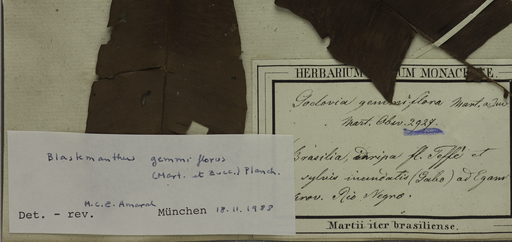 HERBARIUM UM MONACENSE.
Godovia gemmiflora Mart. a Zuc
Mart. Obs. 2927.
Brasilia, in ripa fl. Teffé et
sylvis inundatis (Gabo) ad Egam
prov. Rio Negro.
Martii iter brasiliense.
Blastemanthus gemmiflorus
(Mart. et Zucc.) Planch.
M.C.E. Amaral
Det. - rev. München 18.11.1988